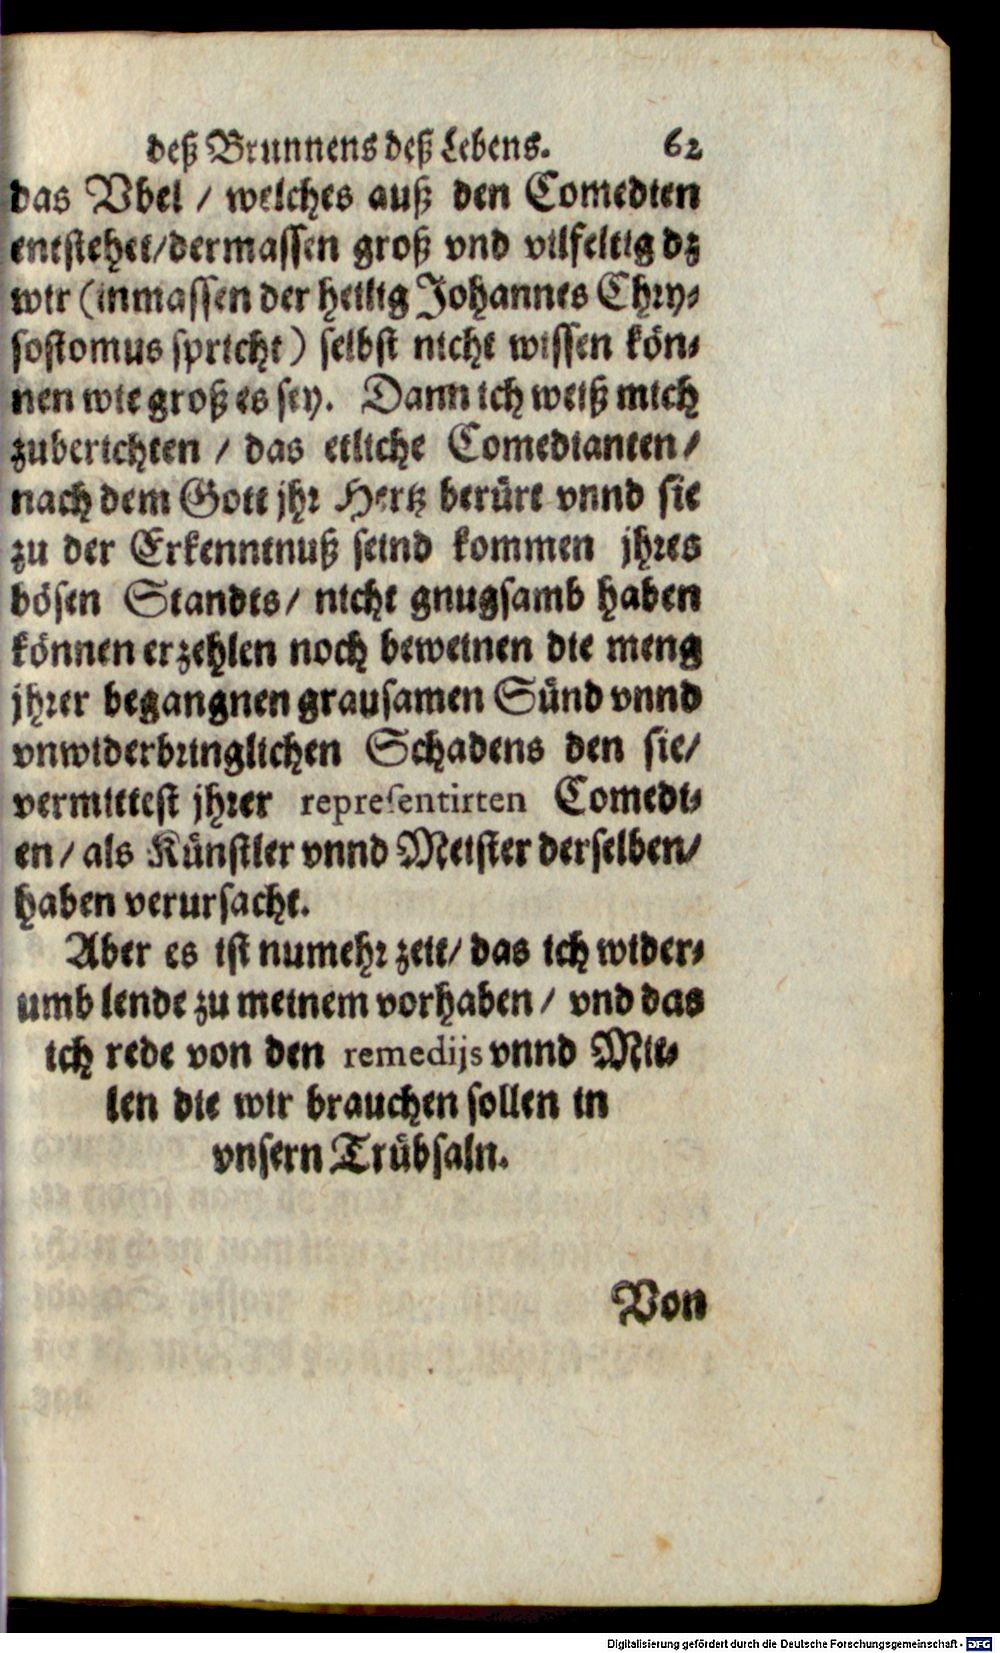 deß Brunnens deß Lebens. 62
das Vbel / welches auß den Comedien
entstehet/dermassen groß vnd vilfeltig dz
wir (inmassen der heilig Johannes Chry-
sostomus spricht) selbst nicht wissen kön-
nen wie groß es sey. Dann ich weiß mich
zuberichten / das etliche Comedianten/
nach dem Gott jhr Hertz berürt vnnd sie
zu der Erkenntnuß seind kommen jhres
bösen Standes/ nicht gnugsamb haben
können erzehlen noch beweinen die meng
jhrer begangnen grausamen Sünd vnnd
vnwiderbringlichen Schadens den sie/
vermittest jhrer representirten Comedi-
en/ als Künstler vnnd Meister derselben/
haben verursacht.
Aber es ist numehr zeit/ das ich wider-
umb lende zu meinem vorhaben/ vnd das
ich rede von den remedijs vnnd Mit-
len die wir brauchen sollen in
vnsern Trübsaln.
Von
Digitalisierung gefördert durch die Deutsche Forschungsgemeinschaft - DFG